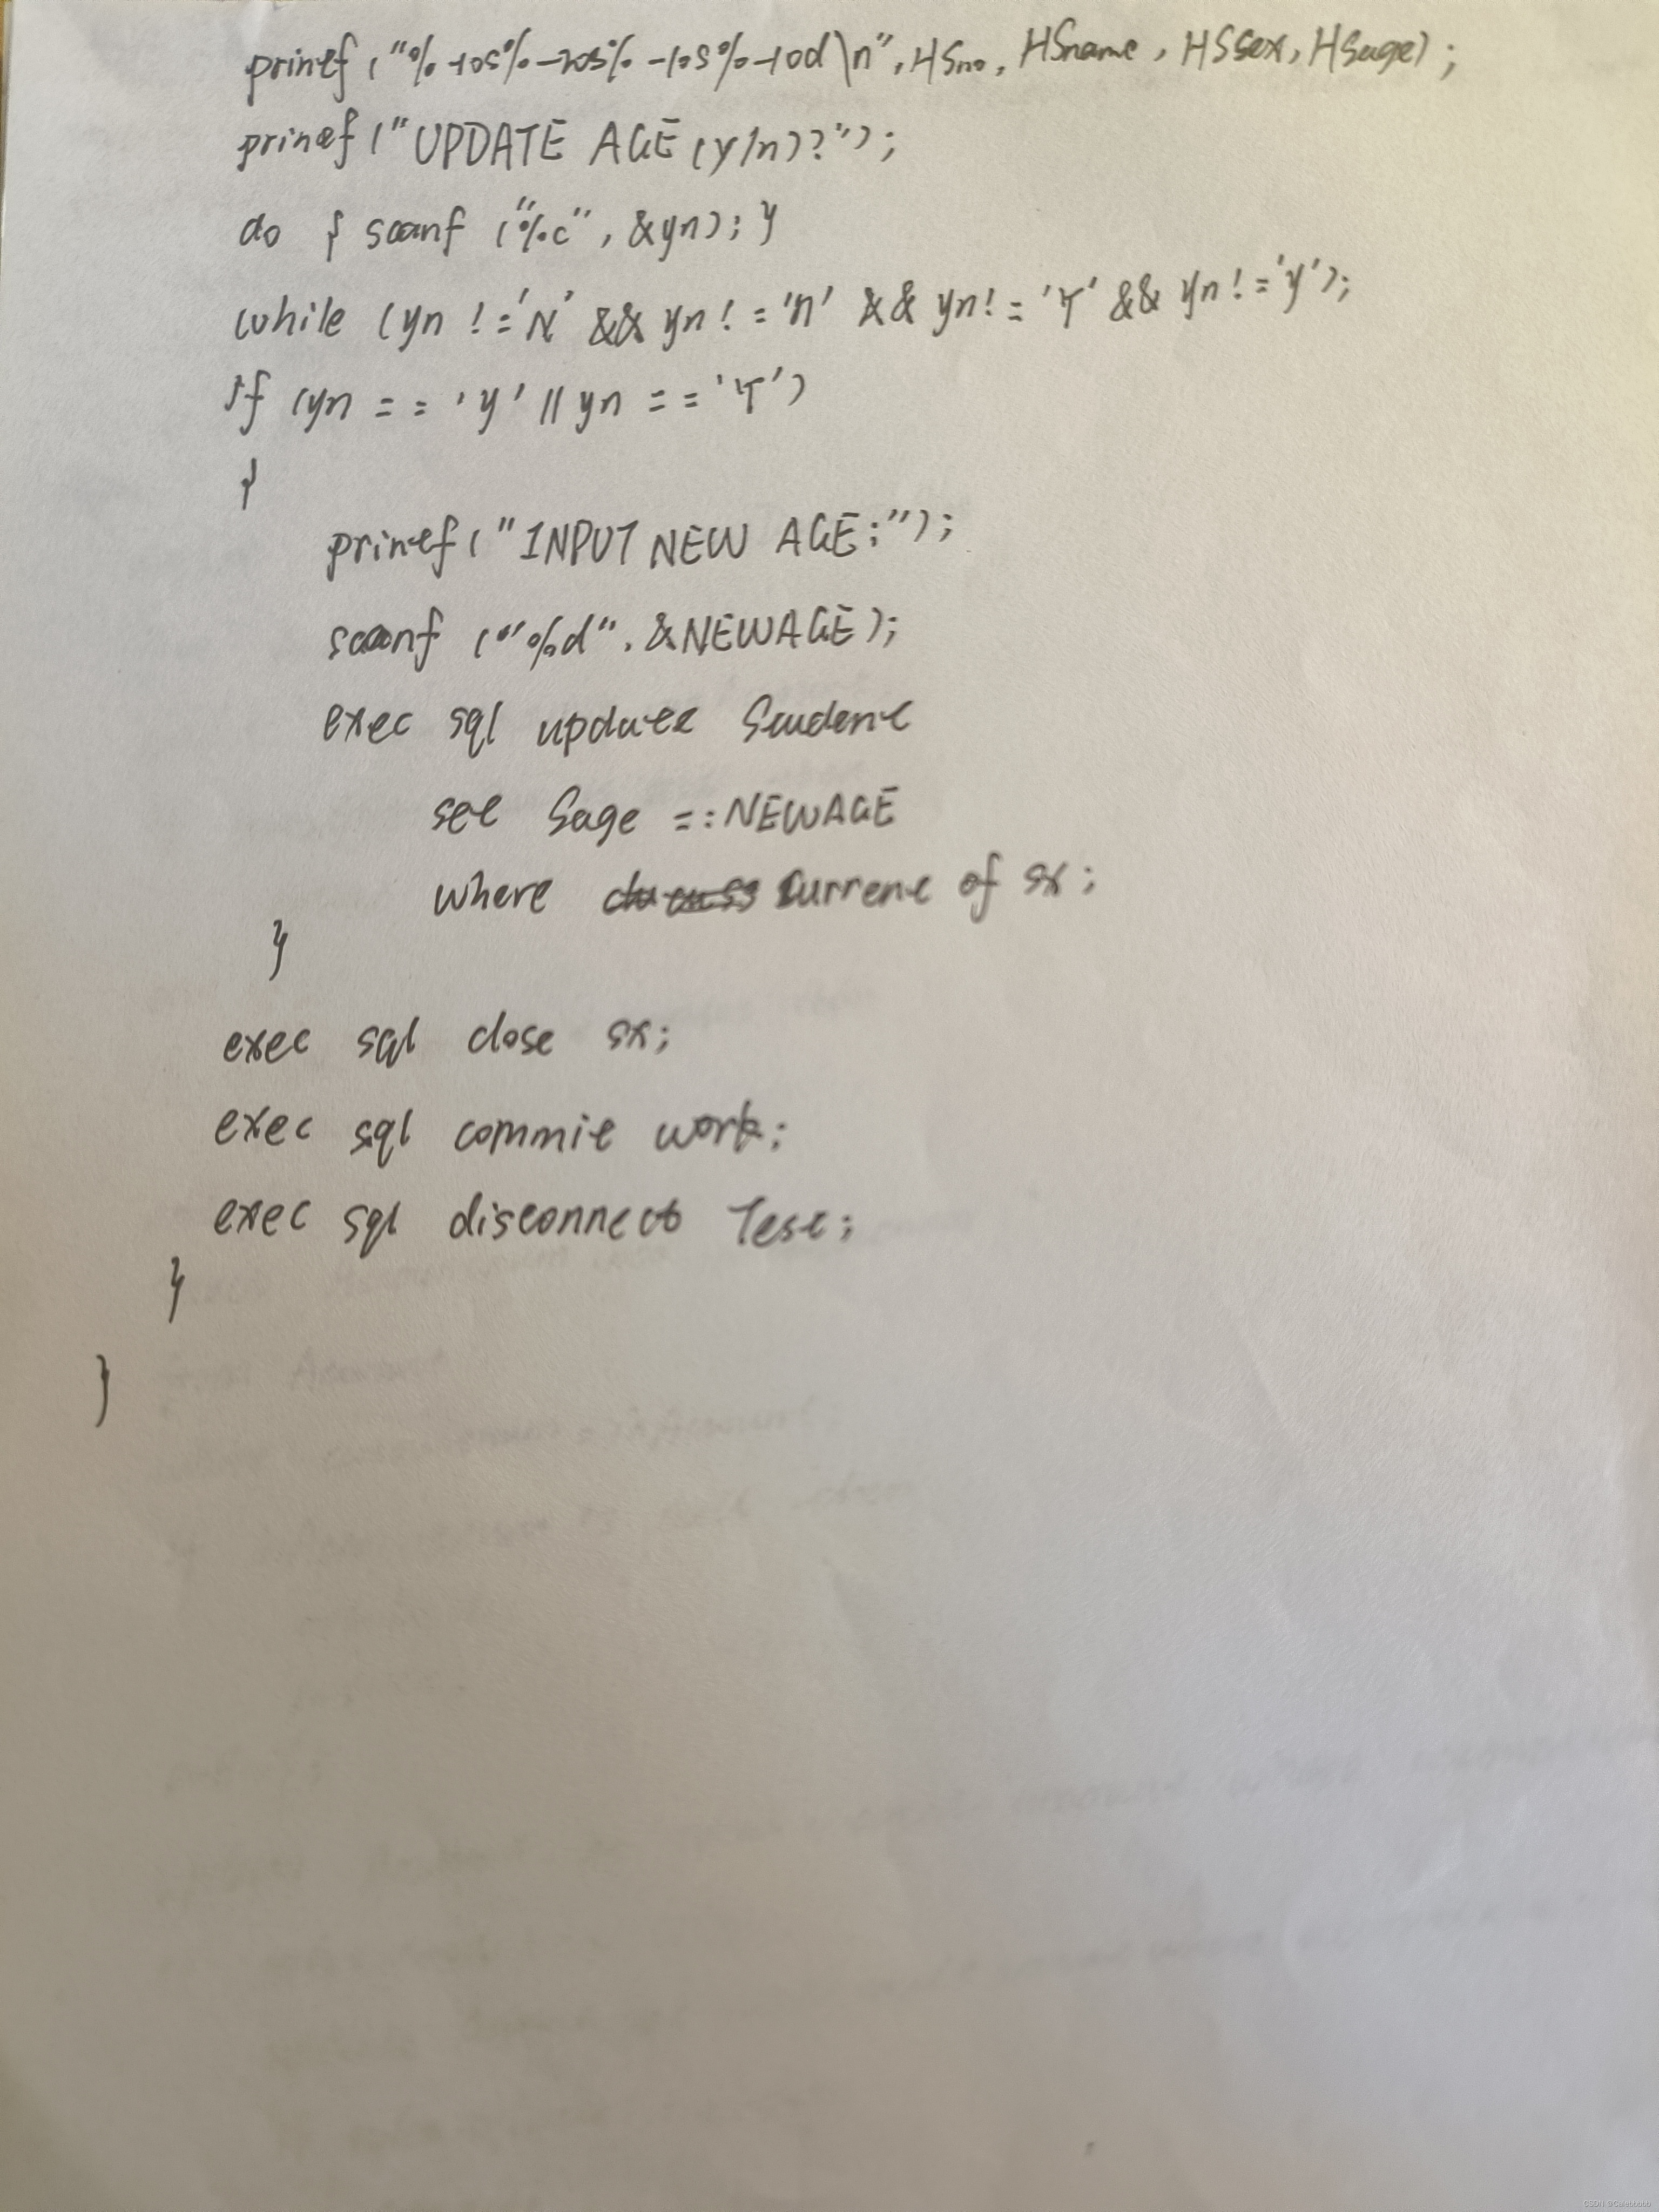 printf ("%-10s%-20s%-10s%-10d\n", HSno, HSname, HSsex, HSage);
printf ("UPDATE AGE (y/n)?");
do { scanf ("%c", &yn); }
while (yn != 'N' && yn != 'n' && yn != 'Y' && yn != 'y');
if (yn == 'y' || yn == 'Y')
{
printf ("INPUT NEW AGE:");
scanf ("%d", &NEWAGE);
exec sql update Student
set Sage =:NEWAGE
where current of sx;
}
exec sql close sx;
exec sql commit work;
exec sql disconnect Test;
}
}
CSDN @Calebbbbb